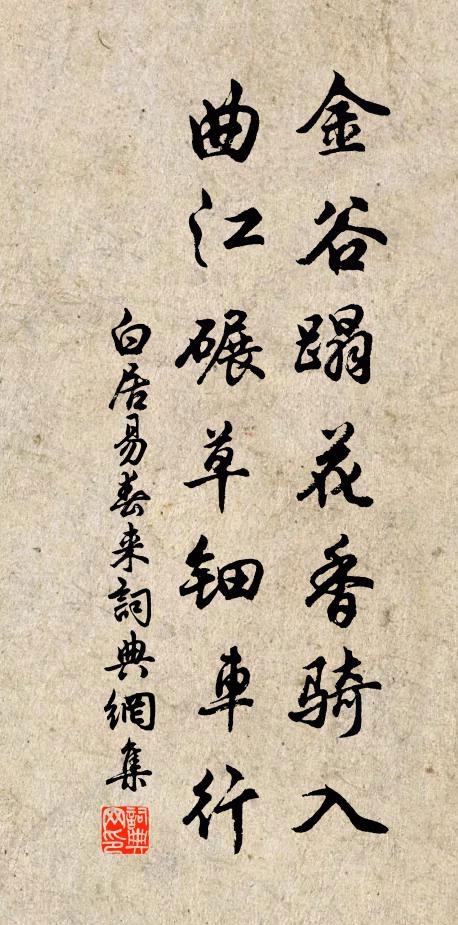 金谷蹋花香骑入
曲江碾草钿車行
白居易春来詞典網集
詞典網印